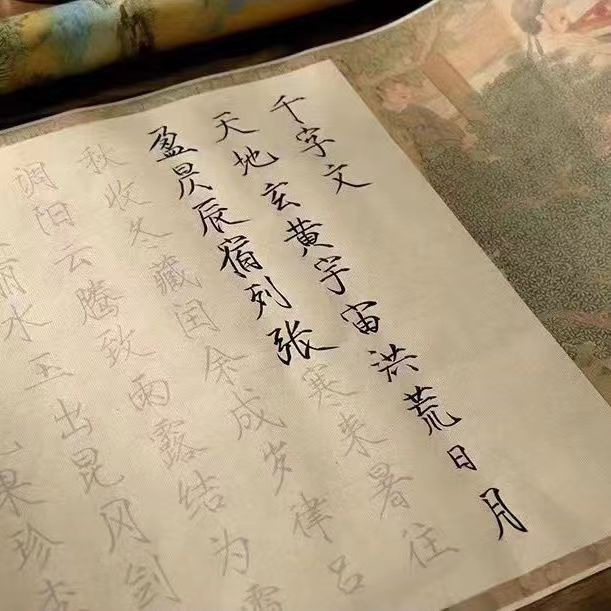 千字文
天地玄黄宇宙洪荒日月
盈昃辰宿列张寒来暑往
秋收冬藏闰余成岁律吕
调阳云腾致雨露结为
丽水玉出昆冈剑
果珍李